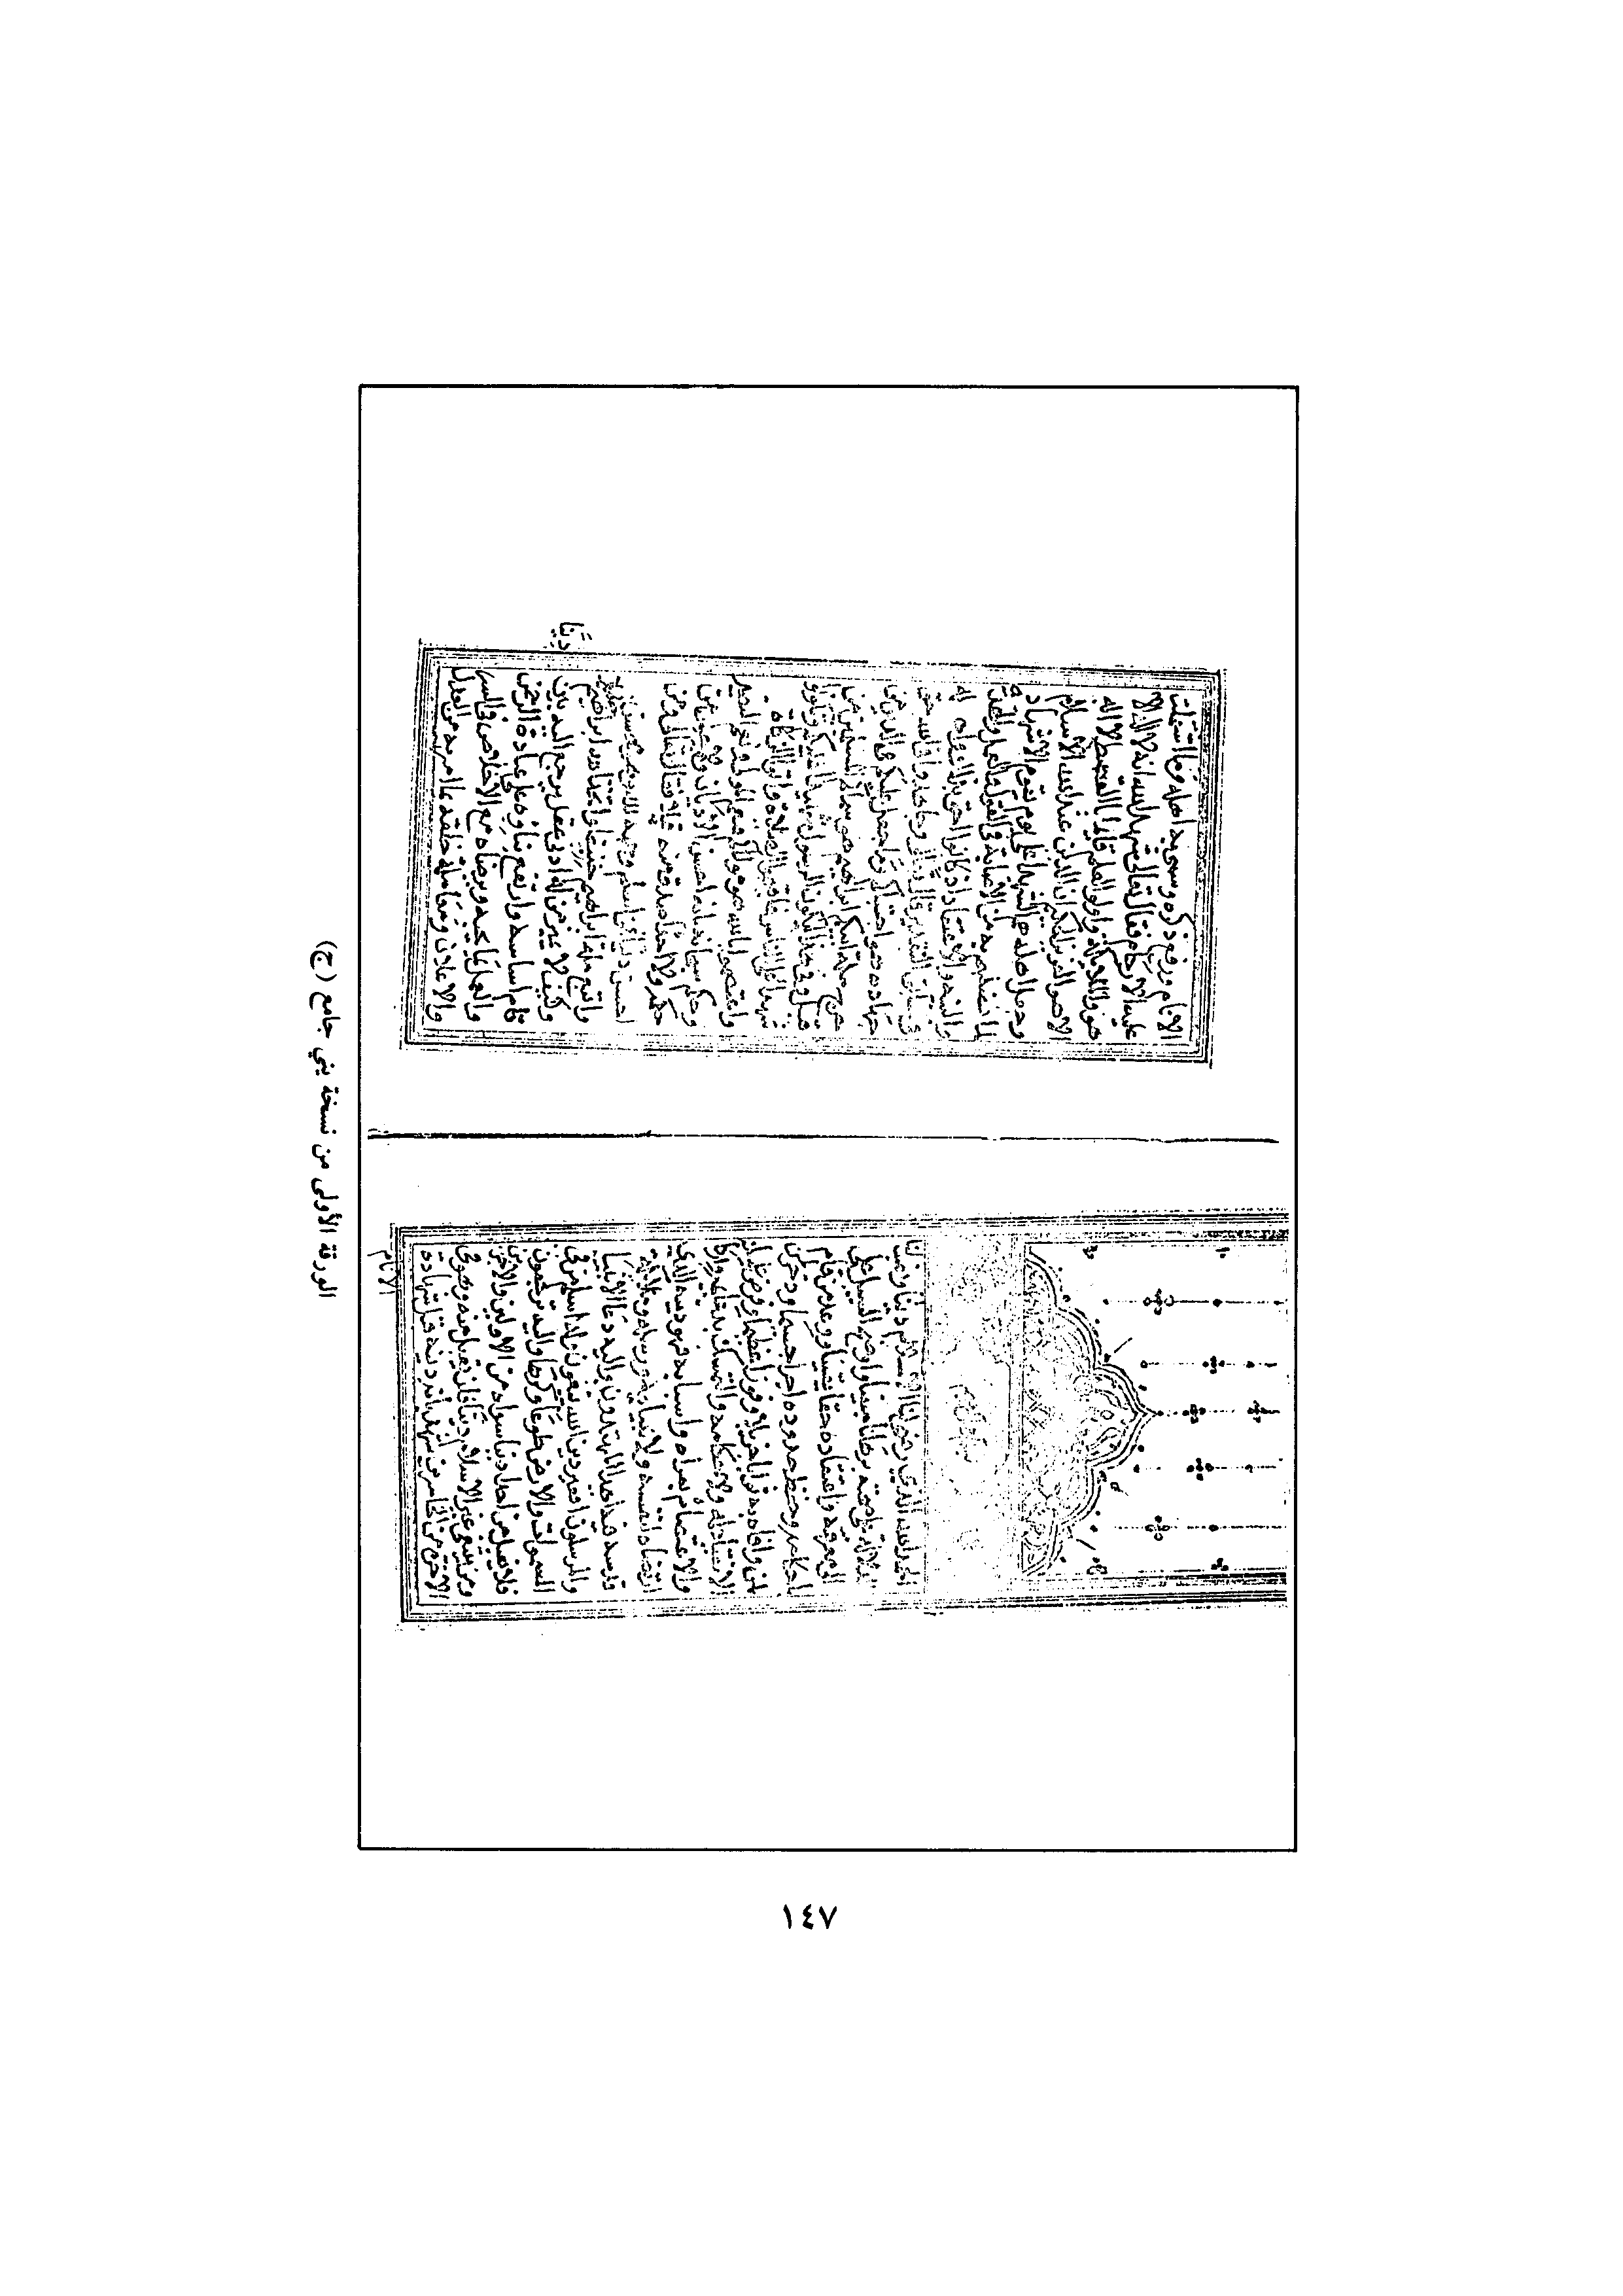 الحمد لله الذي رضي لنا الاسلام دينا ونصب لنا
الدلالة على صحته برهانا مبينا واوضح السبيل الى
معرفته واعتقاده حقا يقينا ووعد من قام
باحكامه وحفظ حدوده اجرا جسيما وذخر
لمن وافاه به ثوابا جزيلا وفوزا عظيما وفرض علينا
الانقياد له ولاحكامه والتمسك بدعائمه واركانه
والاعتصام بعراه واسبابه فهو دينه الذي
ارتضاه لنفسه ولانبيائه ورسله وملائكة
قدسه فبه اهتدى المهتدون واليه دعا الانبياء
والمرسلون افغير دين الله يبغون وله اسلم من في
السموات والارض طوعا وكرها واليه يرجعون
فلا يقبل من احد دينا سواه من الاولين والاخرين
ومن يبتغ غير الاسلام دينا فلن يقبل منه وهو في
الاخرة من الخاسرين شهد بانه دينه قبل شهادة
الانام
الانام ورفع ذكره وسمى به اهله وما اشتملت
عليه الارحام فقال تعالى شهد الله انه لا اله الا
هو والملائكة واولو العلم قائما بالقسط لا اله
الا هو العزيز الحكيم ان الدين عند الله الاسلام
وجعل اهله هم الشهداء على يوم يقوم الاشهاد
لما فضلهم به من الاصابة في القول والعمل والهدى
والنية والاعتقاد اذ كانوا احق بذلك
في سابق التقدير فقال تعالى وجاهدوا في الله حق
جهاده هو اجتباكم وما جعل عليكم في الدين من
حرج ملة ابيكم ابراهيم هو سماكم المسلمين من
قبل وفي هذا ليكون الرسول شهيدا عليكم وتكونوا
شهداء على الناس فاقيموا الصلاة واتوا الزكاة
واعتصموا بالله هو مولاكم فنعم المولى ونعم النصير
وحكم سبحانه بانه احسن الاديان من
حكمه ولا اصدق منه قيلا فقال تعالى ومن
احسن دينا ممن اسلم وجهه لله وهو محسن
واتبع ملة ابراهيم حنيفا واتخذ الله ابراهيم
وكيف لا يميز من له ادنى عقل يرجع اليه بين
قام اساسه وارتفع بناؤه على عبادة الرحمن
والعمل بما يحبه ويرضاه مع الاخلاص في السر
والاعلان ومعاملة خلقه بما امر به من العدل
دينا
الورقة الأولى من نسخة يني جامع (ج)
١٤٧